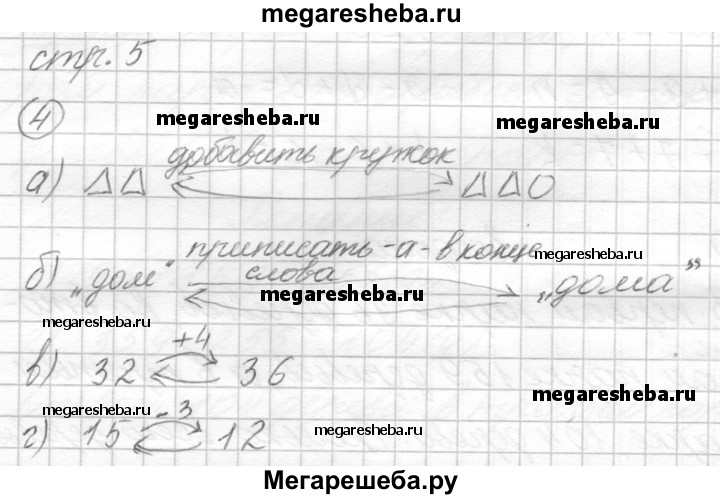 megaresheba.ru
стр. 5
4
megaresheba.ru
megaresheba.ru
добавить кружок
а) △△ △△○
приписать -а- в конце
слова
megaresheba.ru
б) „дом" „дома"
megaresheba.ru
megaresheba.ru
+4
в) 32 36
megaresheba.ru
megaresheba.ru
- 3
г) 15 12
megaresheba.ru
Мегарешеба.ру